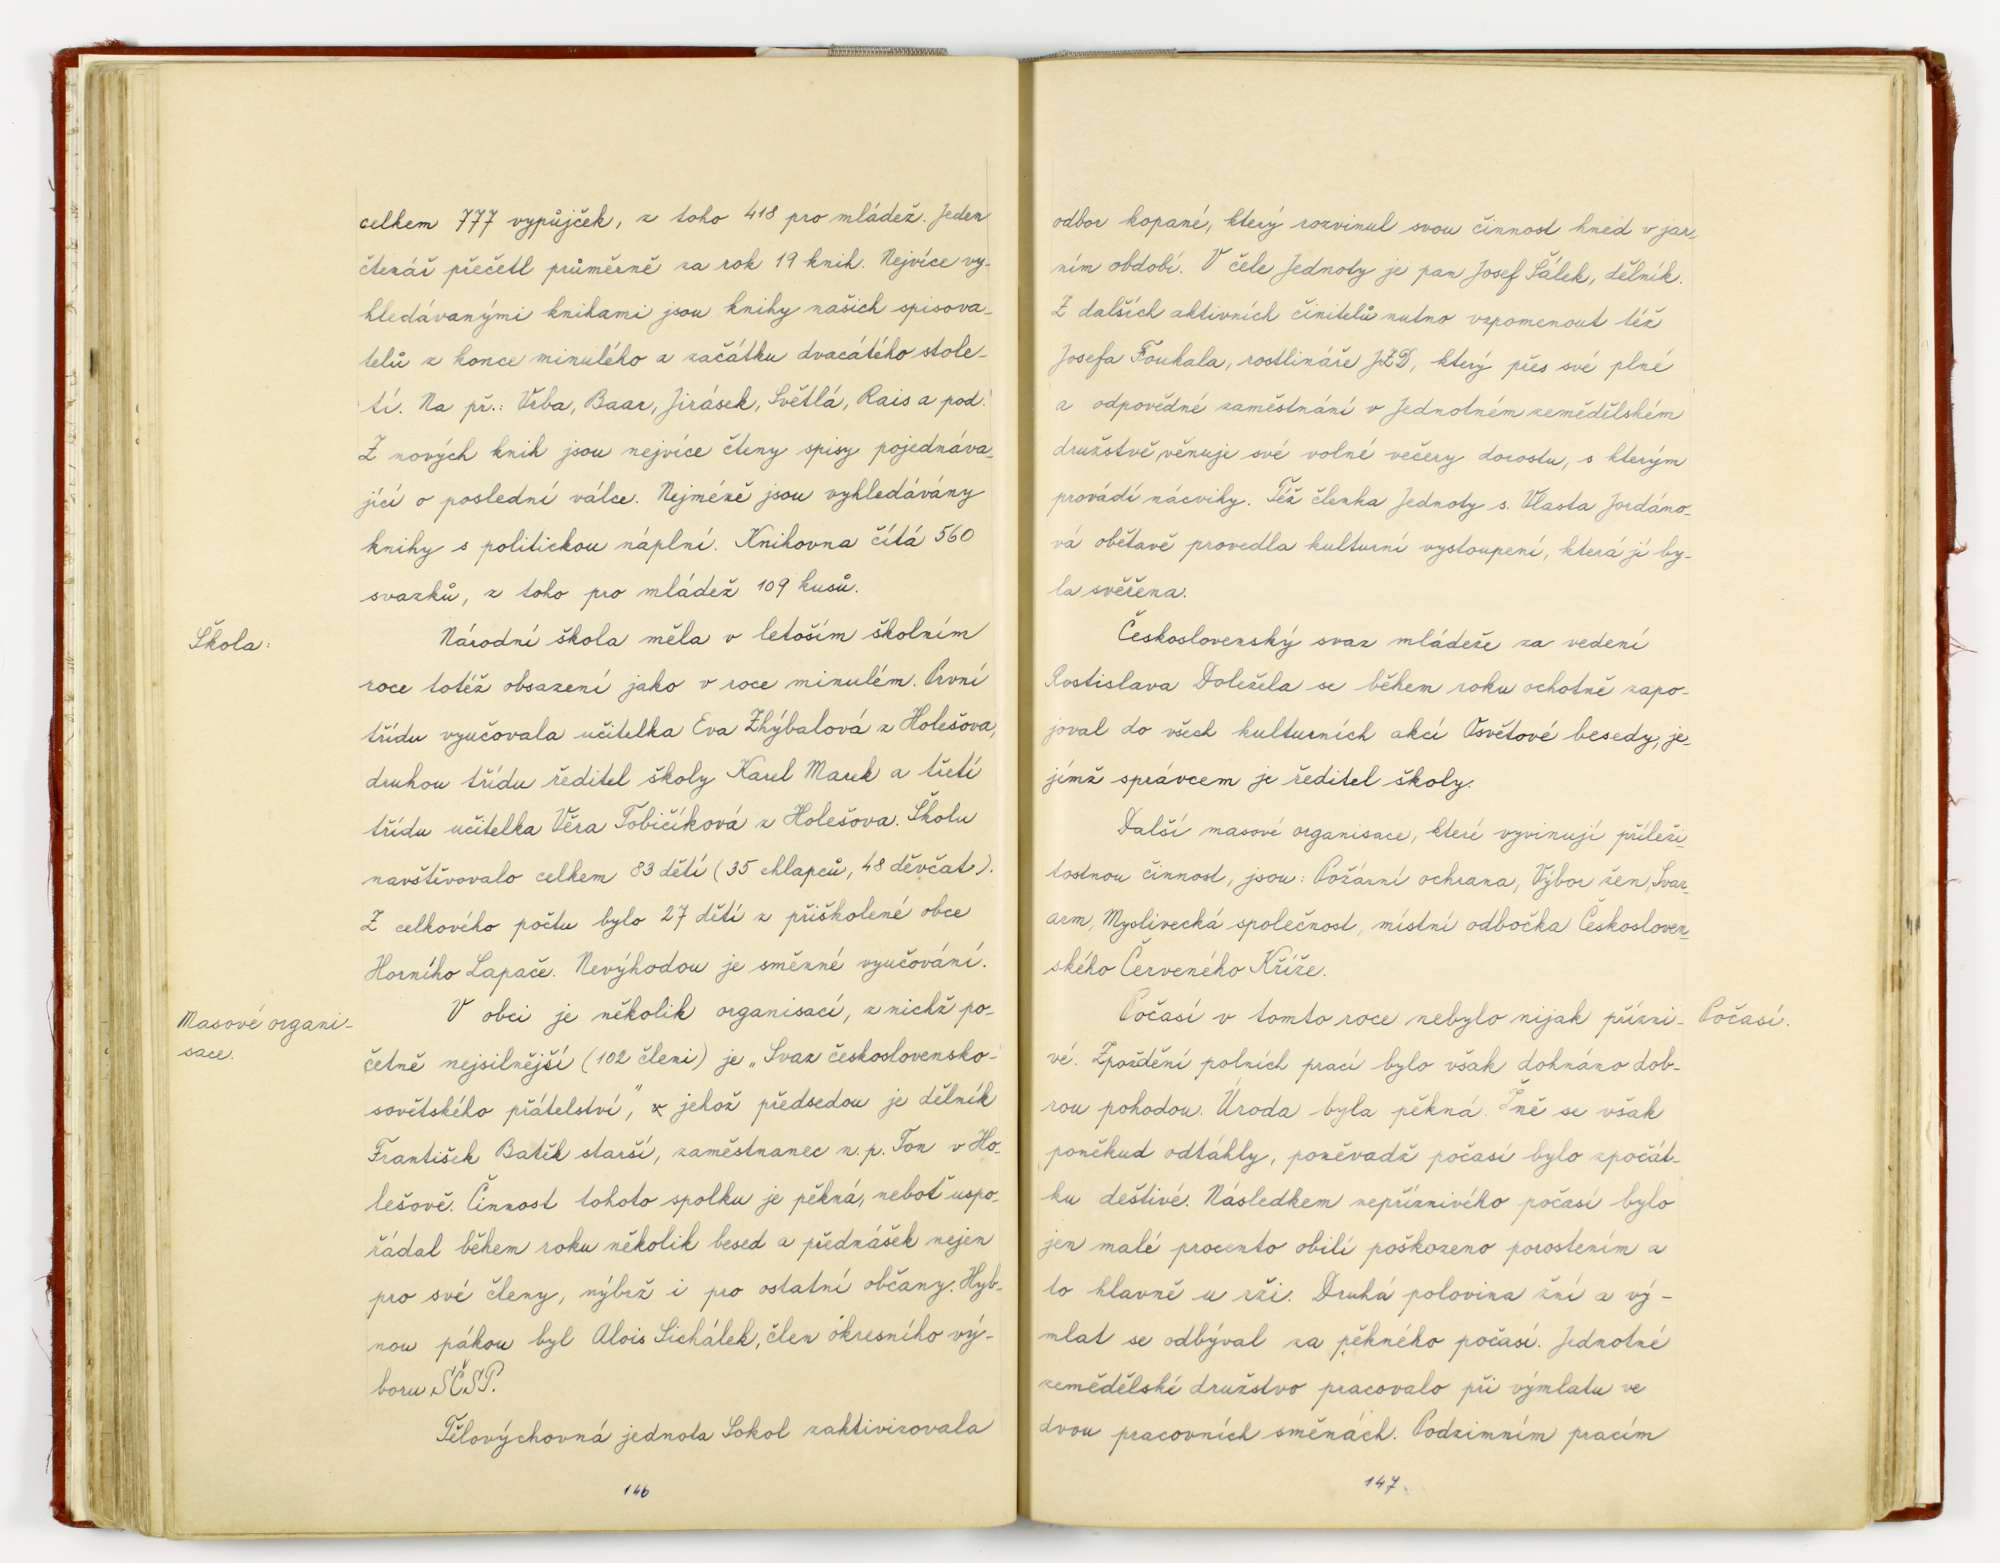 celkem 777 vypůjček, z toho 418 pro mládež. Jeden
čtenář přečetl průměrně za rok 19 knih. Nejvíce vy-
hledávanými knihami jsou knihy našich spisova-
telů z konce minulého a začátku dvacátého stole-
tí. Na př.: Vrba, Baar, Jirásek, Světlá, Rais a pod.
Z nových knih jsou nejvíce čteny spisy pojednáva-
jící o poslední válce. Nejméně jsou vyhledávány
knihy s politickou náplní. Knihovna čítá 560
svazků, z toho pro mládež 109 kusů.
Škola:
Národní škola měla v letoším školním
roce totéž obsazení jako v roce minulém. První
třídu vyučovala učitelka Eva Zhýbalová z Holešova,
druhou třídu ředitel školy Karel Marek a třetí
třídu učitelka Věra Tobičíková z Holešova. Školu
navštěvovalo celkem 83 dětí (35 chlapců, 48 děvčat).
Z celkového počtu bylo 27 dětí z přiškolené obce
Horního Lapače. Nevýhodou je směnné vyučování.
Masové organi-
sace.
V obci je několik organisací, z nichž po-
četně nejsilnější (102 členi) je „Svaz československo-
sovětského přátelství", jehož předsedou je dělník
František Batěk starší, zaměstnanec n. p. Ton v Ho-
lešově. Činnost tohoto spolku je pěkná, neboť uspo-
řádal během roku několik besed a přednášek nejen
pro své členy, nýbrž i pro ostatní občany. Hyb-
nou pákou byl Alois Sichálek, člen okresního vý-
boru SČSP.
Tělovýchovná jednota Sokol zaktivizovala
146
odbor kopané, který rozvinul svou činnost hned v jar-
ním období. V čele Jednoty je pan Josef Šálek, dělník.
Z dalších aktivních činitelů nutno vzpomenout též
Josefa Foukala, rostlináře JZD, který přes své plné
a odpovědné zaměstnání v Jednotném zemědělském
družstvě, věnuje své volné večery dorostu, s kterým
provádí nácviky. Též členka Jednoty s. Vlasta Jordáno-
vá obětavě provedla kulturní vystoupení, která jí by-
la svěřena.
Československý svaz mládeže za vedení
Rostislava Doležela se během roku ochotně zapo-
joval do všech kulturních akcí Osvětové besedy, je-
jímž správcem je ředitel školy.
Další masové organisace, které vyvinují příleži-
tostnou činnost, jsou: Požární ochrana, Výbor žen, Svaz-
arm, Myslivecká společnost, místní odbočka Českosloven-
ského Červeného Kříže.
Počasí v tomto roce nebylo nijak přízni-
Počasí.
vé. Zpoždění polních prací bylo však dohnáno dob-
rou pohodou. Úroda byla pěkná. Žně se však
poněkud odtáhly, poněvadž počasí bylo zpočát-
ku deštivé. Následkem nepříznivého počasí bylo
jen malé procento obilí poškozeno porostením a
to hlavně u rži. Druhá polovina žní a vý-
mlat se odbýval za pěkného počasí. Jednotné
zemědělské družstvo pracovalo při výmlatu ve
dvou pracovních směnách. Podzimním pracím
147.